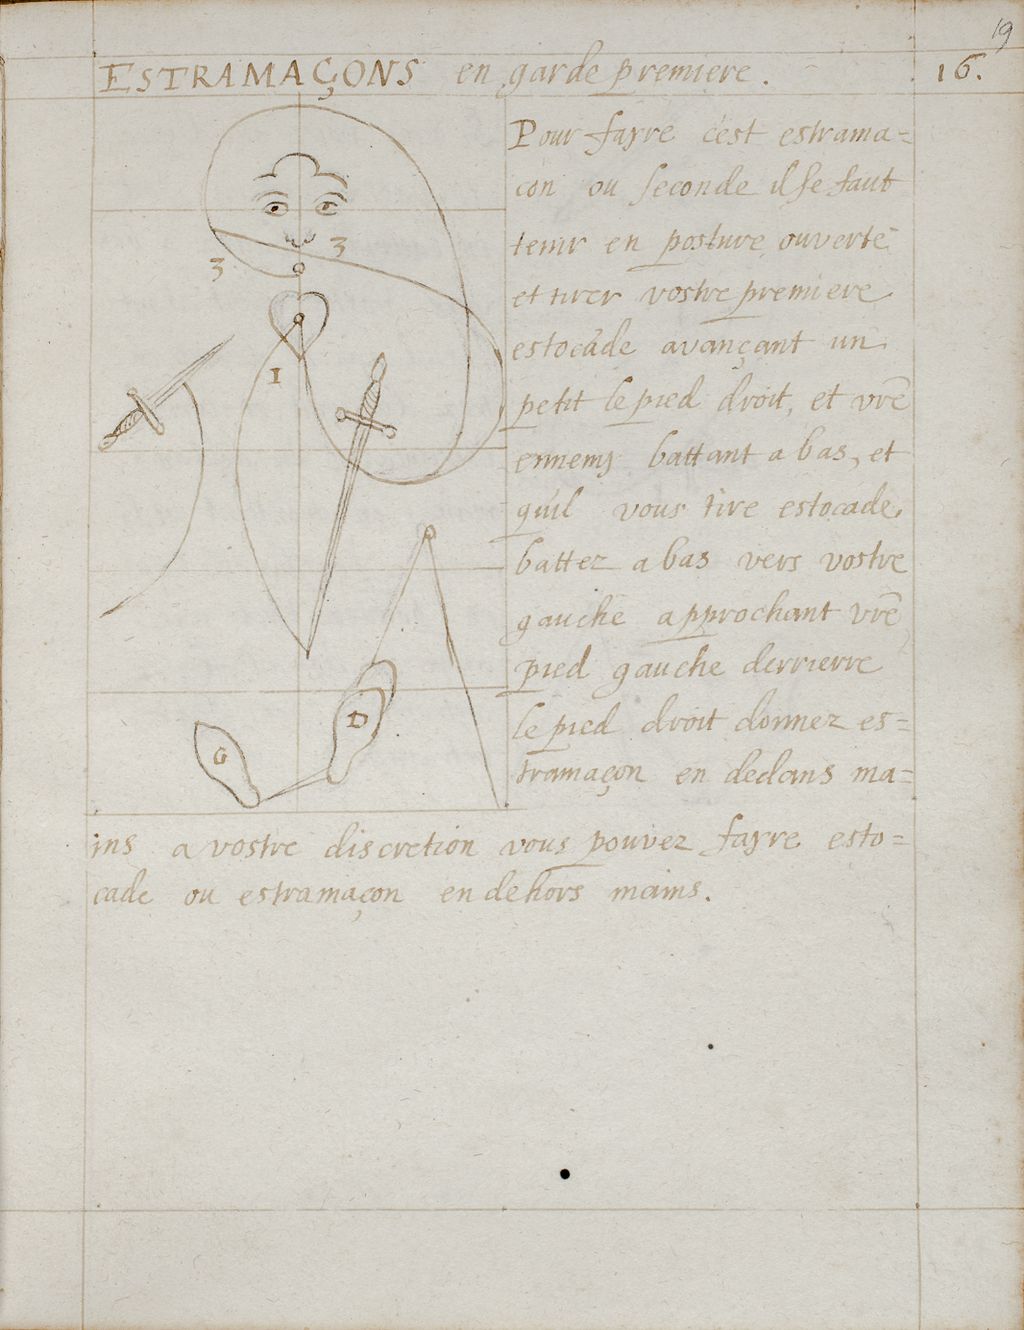 19
ESTRAMAÇONS en garde premiere. 16.
Pour fayre c'est estrama=
con ou seconde il se faut
tenir en posture ouverte
et tirer vostre premiere
estocade avançant un
petit le pied droit, et vrē
ennemy battant a bas, et
quil vous tire estocade,
battez a bas vers vostre
gauche approchant vrē
pied gauche derrierre
le pied droit donnez es=
tramaçon en dedans ma=
ins a vostre discretion vous pouvez fayre esto=
cade ou estramaçon en dehors mains.
3
3
1
D
G